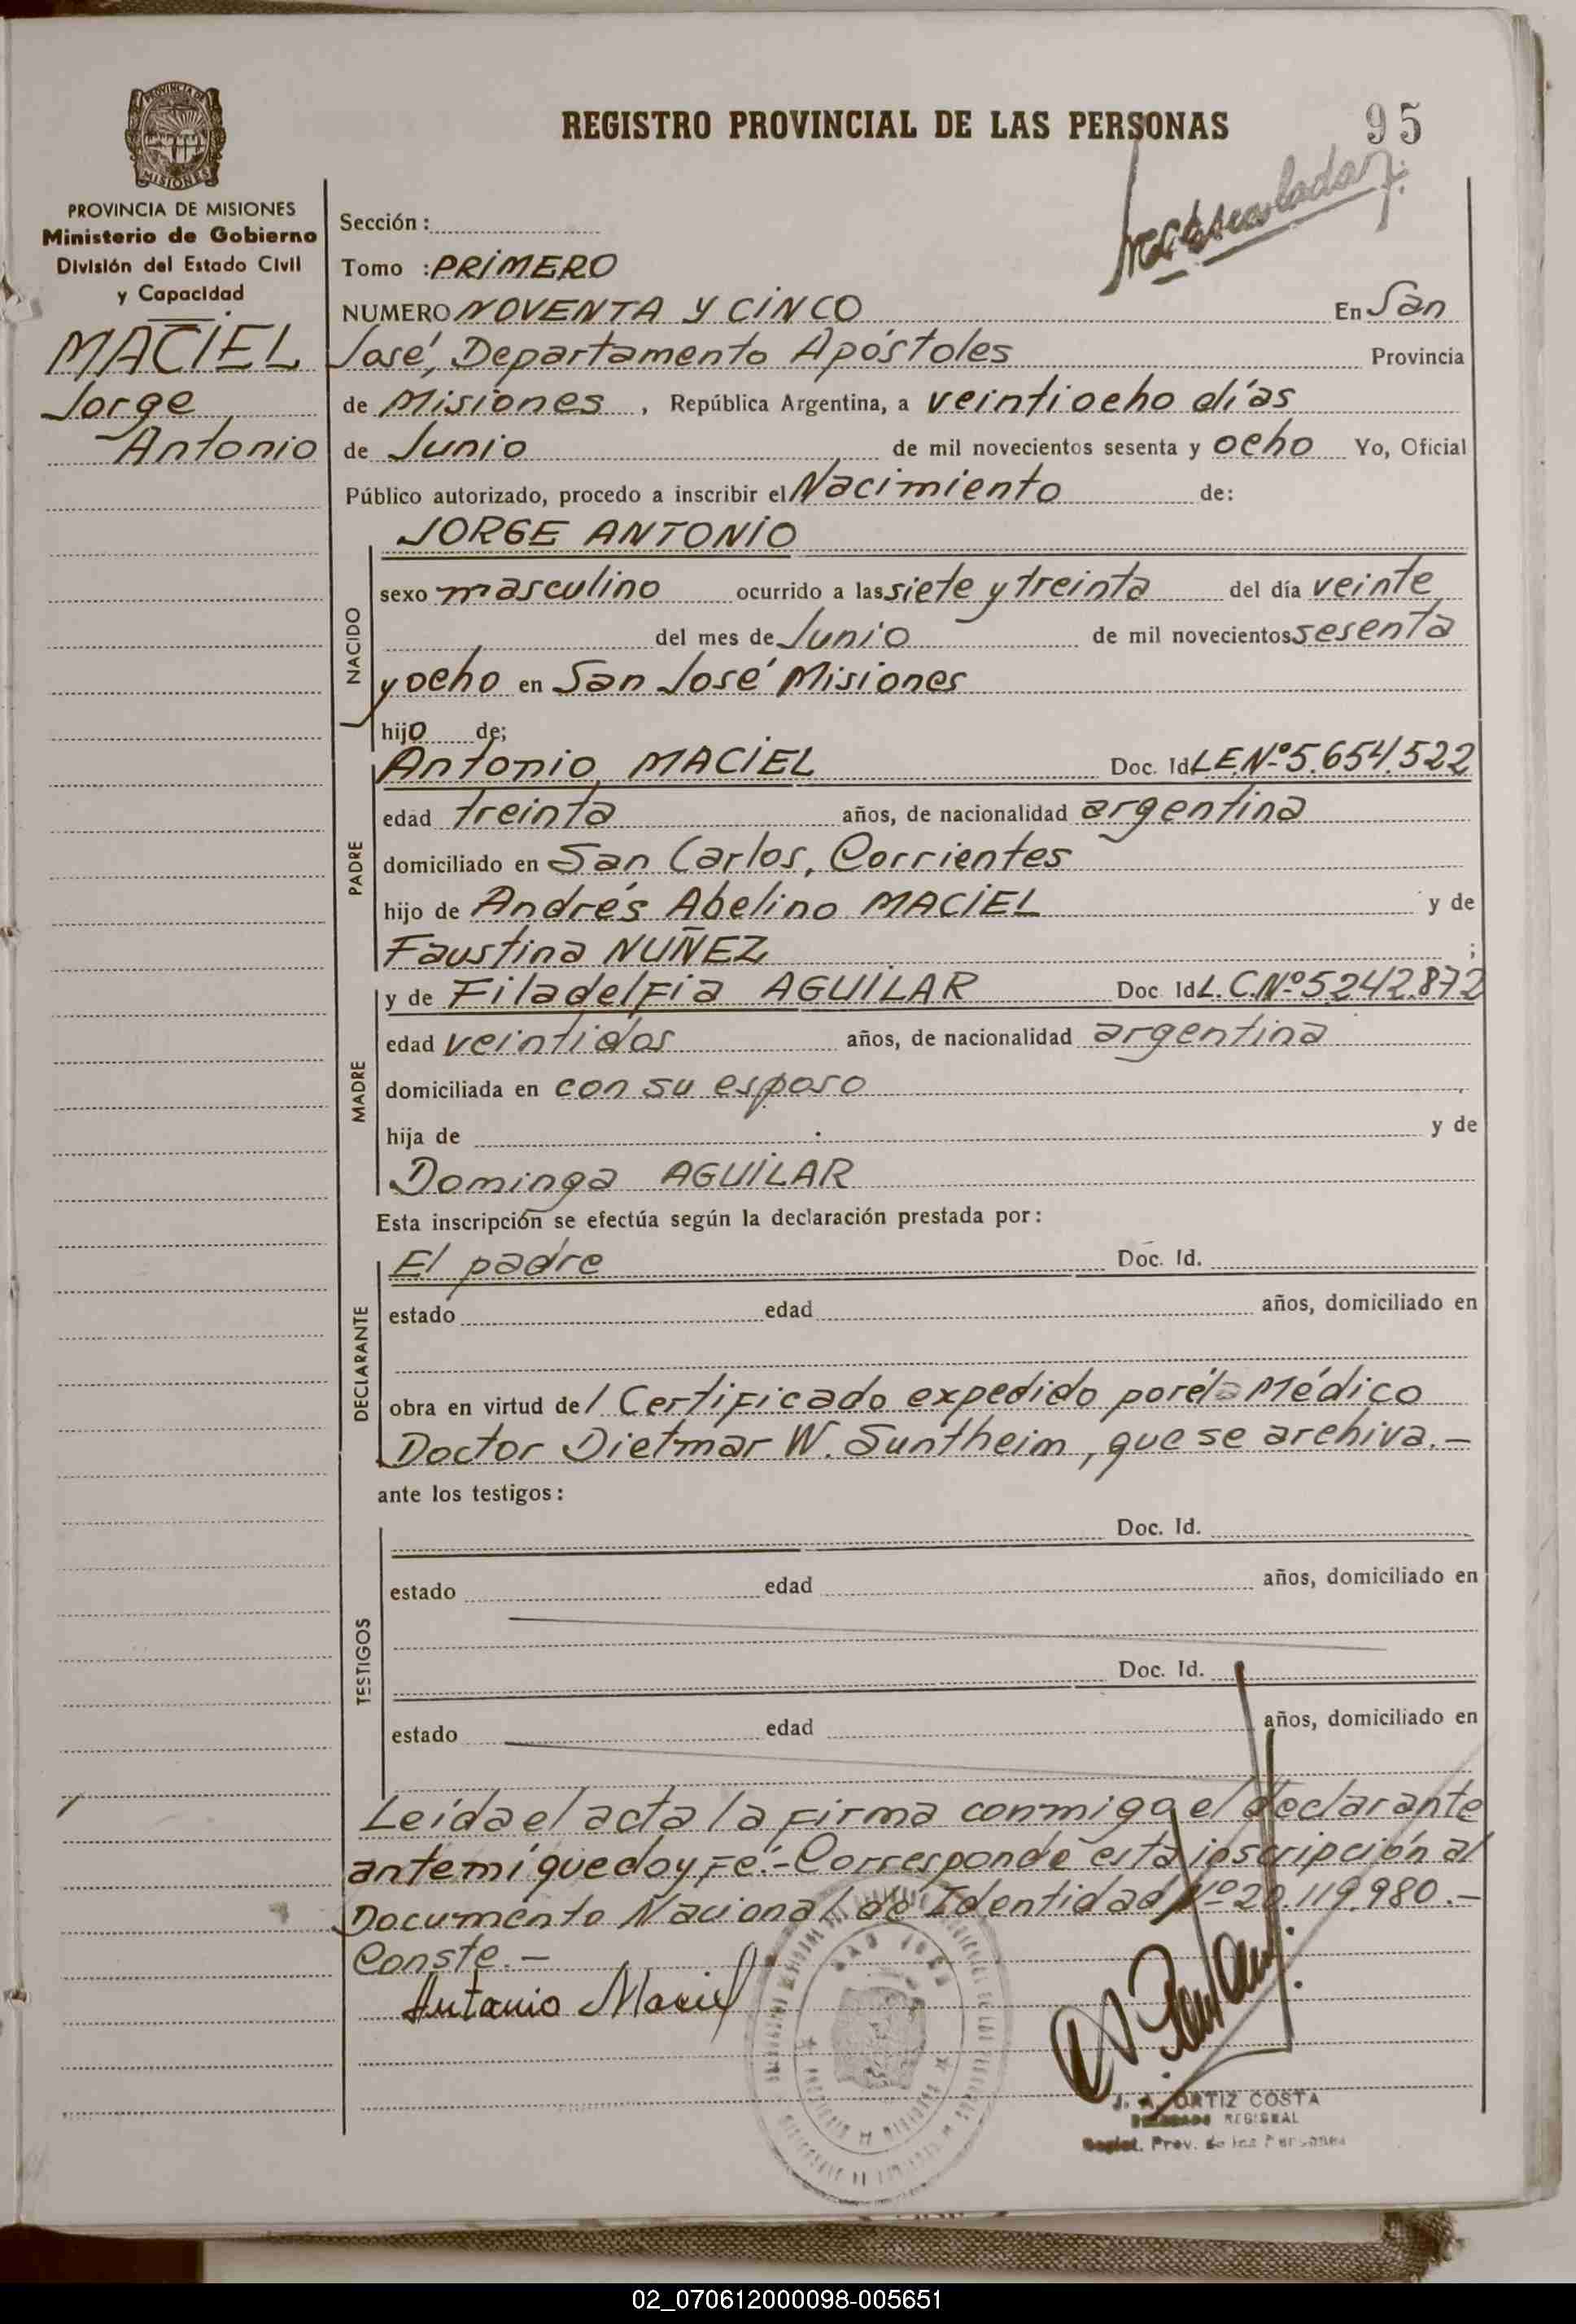 REGISTRO PROVINCIAL DE LAS PERSONAS 95
PROVINCIA DE MISIONES
Ministerio de Gobierno
División del Estado Civil
y Capacidad
MACIEL
Jorge
Antonio
Sección :
Tomo : PRIMERO
NUMERO NOVENTA Y CINCO En San
José, Departamento Apóstoles Provincia
de Misiones , República Argentina, a veintiocho días
de Junio de mil novecientos sesenta y ocho Yo, Oficial
Público autorizado, procedo a inscribir el Nacimiento de:
JORGE ANTONIO
NACIDO
sexo masculino ocurrido a las siete y treinta del día veinte
del mes de Junio de mil novecientos sesenta
y ocho en San José Misiones
hijo de;
PADRE
Antonio MACIEL Doc. Id L.E.Nº5.654.522
edad treinta años, de nacionalidad argentina
domiciliado en San Carlos, Corrientes
hijo de Andrés Abelino MACIEL y de
Faustina NUÑEZ ;
MADRE
y de Filadelfia AGUILAR Doc Id L.C.Nº5.242.872
edad veintidos años, de nacionalidad argentina
domiciliada en con su esposo
hija de y de
Dominga AGUILAR
Esta inscripción se efectúa según la declaración prestada por:
DECLARANTE
El padre Doc. Id.
estado edad años, domiciliado en
obra en virtud del Certificado expedido por el Médico
Doctor Dietmar W. Suntheim, que se archiva.-
ante los testigos:
TESTIGOS
Doc. Id.
estado edad años, domiciliado en
Doc. Id.
estado edad años, domiciliado en
Leída el acta la firma conmigo el declarante
ante mí que doy Fé.- Corresponde esta inscripción al
Documento Nacional de Identidad Nº 20.119.980.-
Conste.-
Antonio Maciel
J. A. ORTIZ COSTA
DELEGADO REGISTRAL
Regist. Prov. de las Personas
02_070612000098-005651